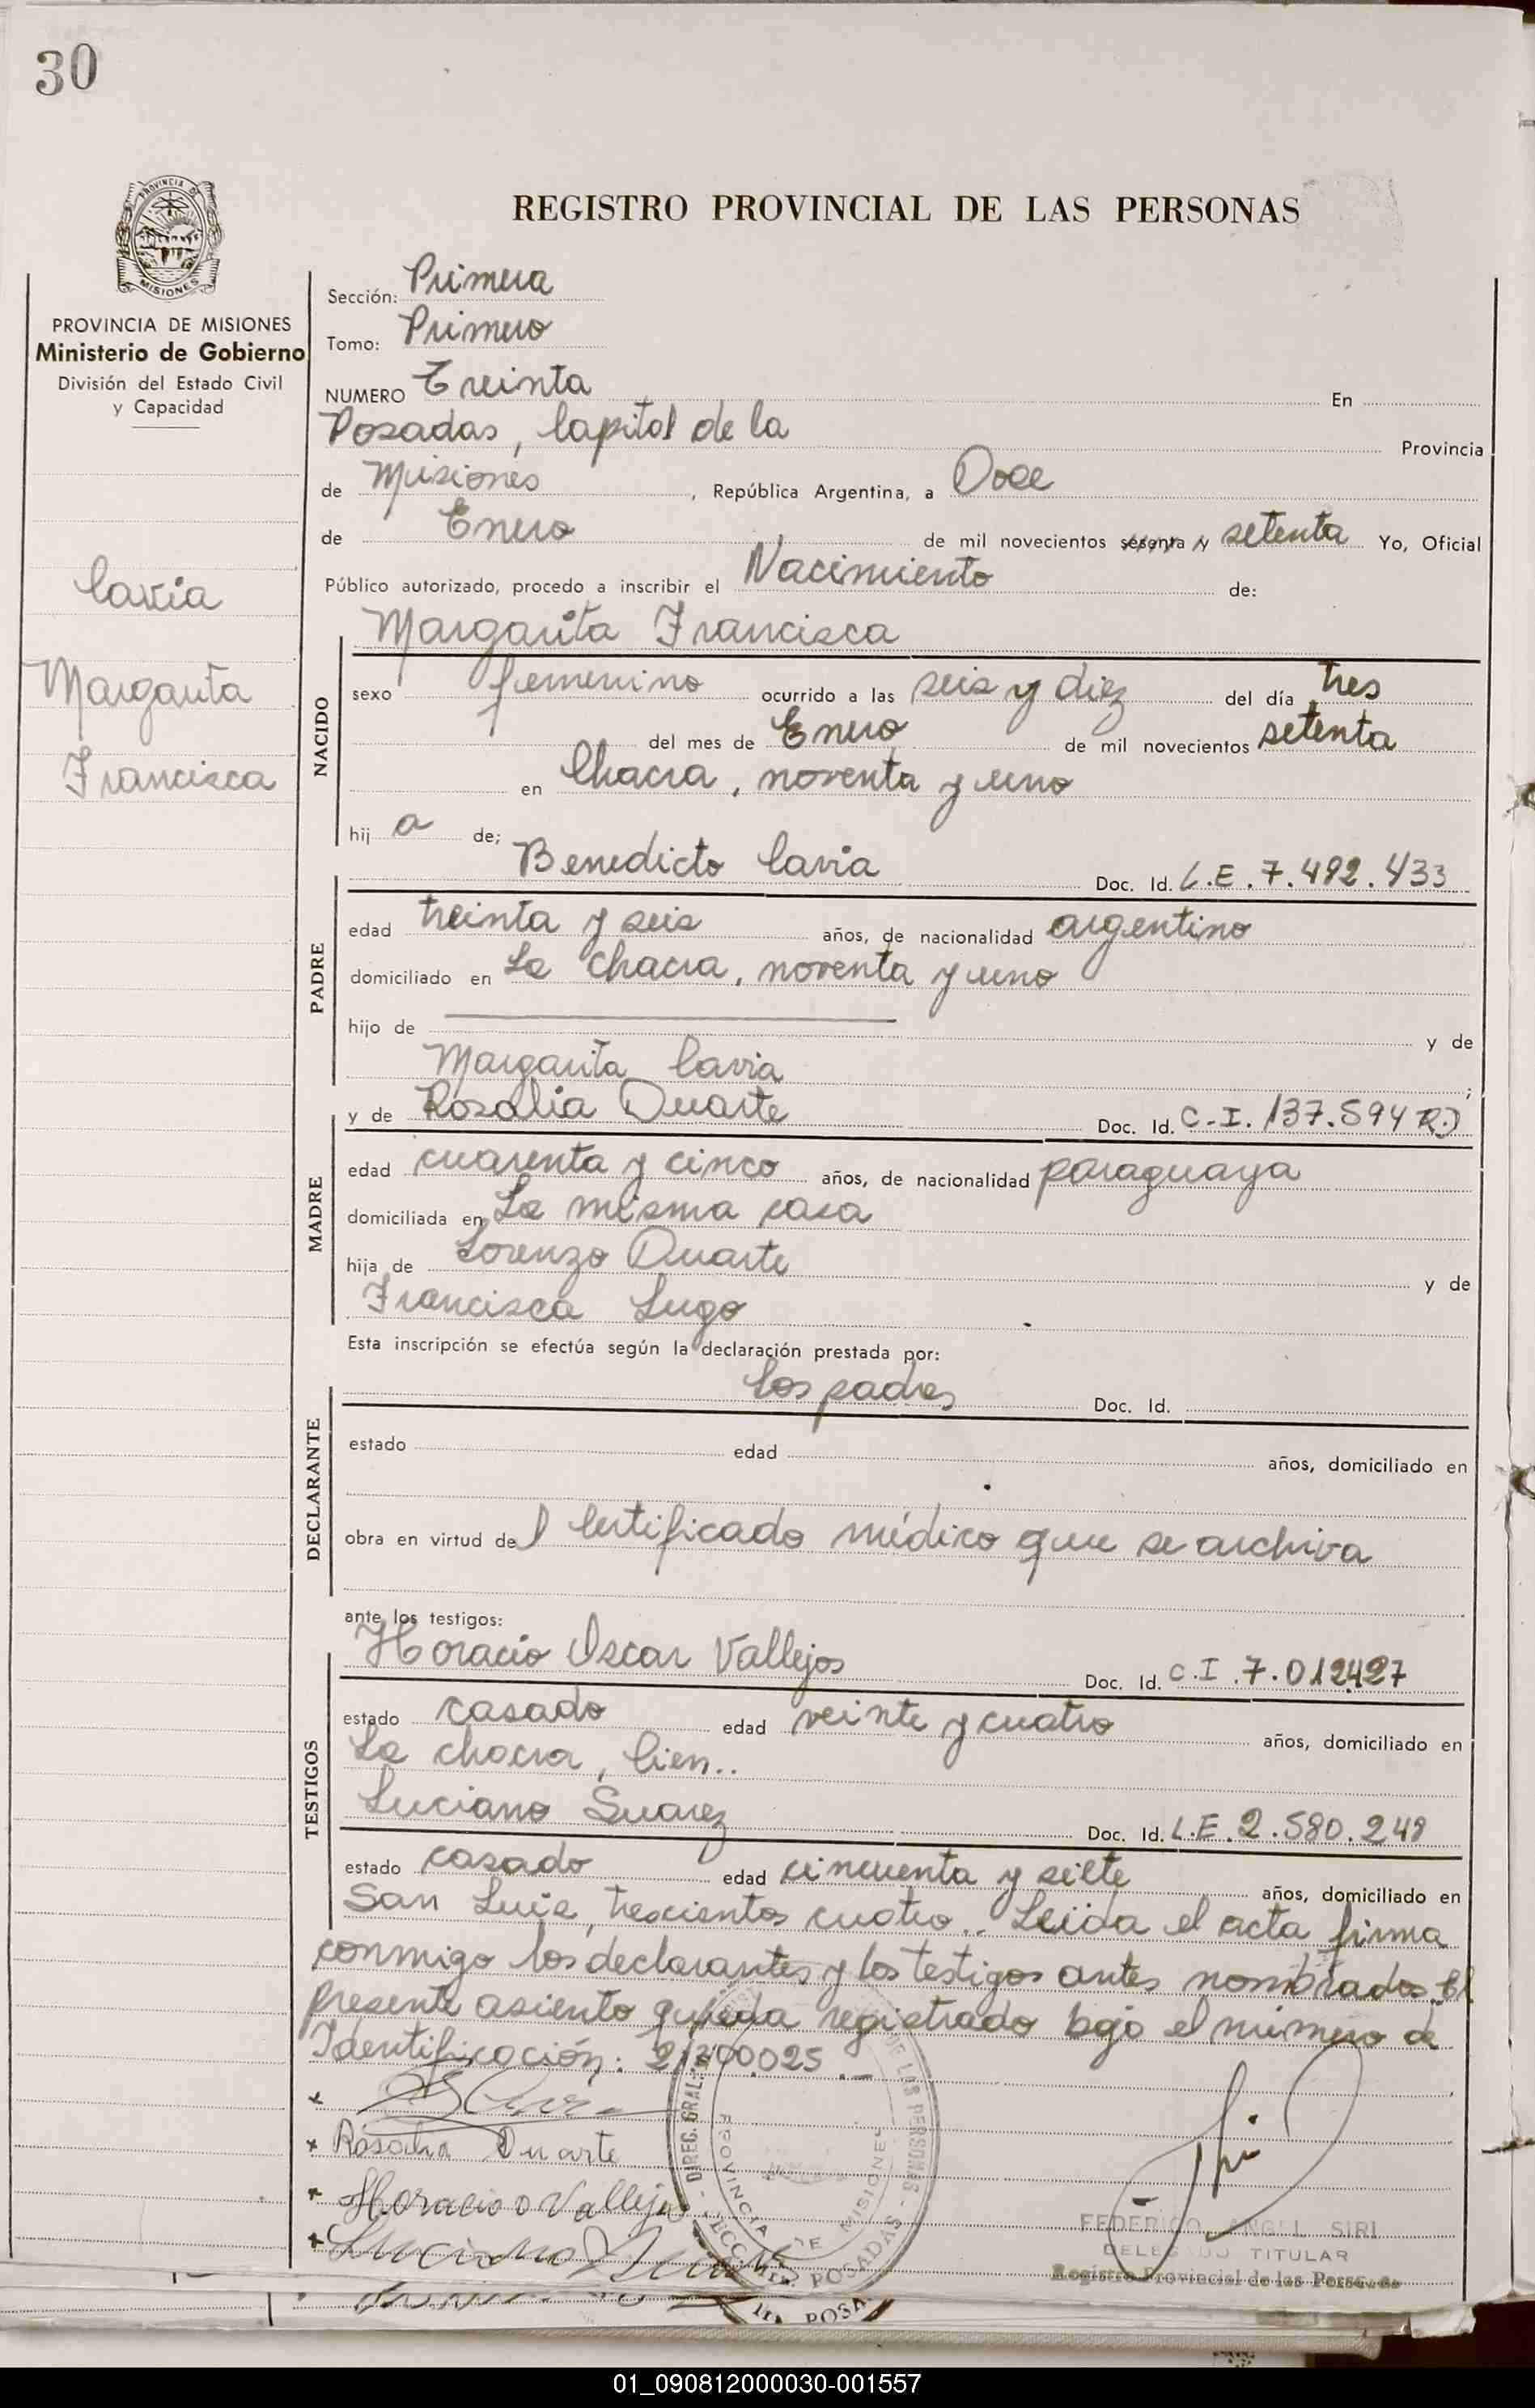 30
PROVINCIA DE
MISIONES
REGISTRO PROVINCIAL DE LAS PERSONAS
PROVINCIA DE MISIONES
Ministerio de Gobierno
División del Estado Civil
y Capacidad
Cavia
Margarita
Francisca
Sección: Primera
Tomo: Primero
NUMERO Treinta En
Posadas, Capital de la Provincia
de Misiones, República Argentina, a Doce
de Enero de mil novecientos sesenta y setenta Yo, Oficial
Público autorizado, procedo a inscribir el Nacimiento de:
Margarita Francisca
NACIDO
sexo femenino ocurrido a las seis y diez del día tres
del mes de Enero de mil novecientos setenta
en Chacra, noventa y uno
hij a de;
Benedicto Cavia Doc. Id. L.E. 7.492.433
PADRE
edad treinta y seis años, de nacionalidad argentino
domiciliado en La Chacra, noventa y uno
hijo de y de
Margarita Cavia ;
y de Rosalia Duarte Doc. Id. C.I. 137.594 R.)
MADRE
edad cuarenta y cinco años, de nacionalidad paraguaya
domiciliada en La misma casa
hija de Lorenzo Duarte y de
Francisca Lugo
Esta inscripción se efectúa según la declaración prestada por:
los padres Doc. Id.
DECLARANTE
estado edad años, domiciliado en
obra en virtud del Certificado médico que se archiva
ante los testigos:
Horacio Oscar Vallejos Doc. Id. C.I. 7.012.427
TESTIGOS
estado casado edad veinte y cuatro años, domiciliado en
La chacra, Cien..
Luciano Suarez Doc. Id. L.E. 2.580.248
estado casado edad cincuenta y siete años, domiciliado en
San Luis, trescientos cuatro.. Leida el acta firma
conmigo los declarantes y los testigos antes nombrados. El
presente asiento queda registrado bajo el número de
Identificación: 21.200.025 .-
x
x Rosalia Duarte
x Horacio O Vallejos
x Luciano Suarez
DIREC. GRAL. DE LAS PERSONAS
PROVINCIA DE MISIONES
POSADAS
FEDERICO ANGEL SIRI
DELEGADO TITULAR
Registro Provincial de las Personas
01_090812000030-001557